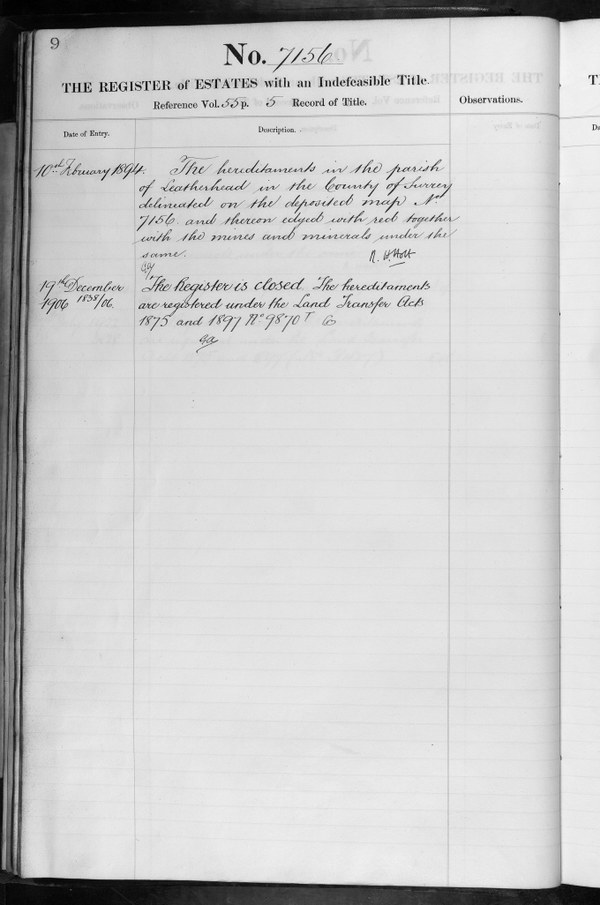 9
No. 7156
THE REGISTER of ESTATES with an Indefeasible Title.
Reference Vol. 55 p. 5 Record of Title.
Observations.
Date of Entry.
Description.
10th February 1894.
The hereditaments in the parish
of Leatherhead in the County of Surrey
delineated on the deposited map No
7156 and thereon edged with red together
with the mines and minerals under the
same.
19th December
1906 1838/06.
The Register is closed. The hereditaments
are registered under the Land Transfer Acts
1875 and 1897 No 9870